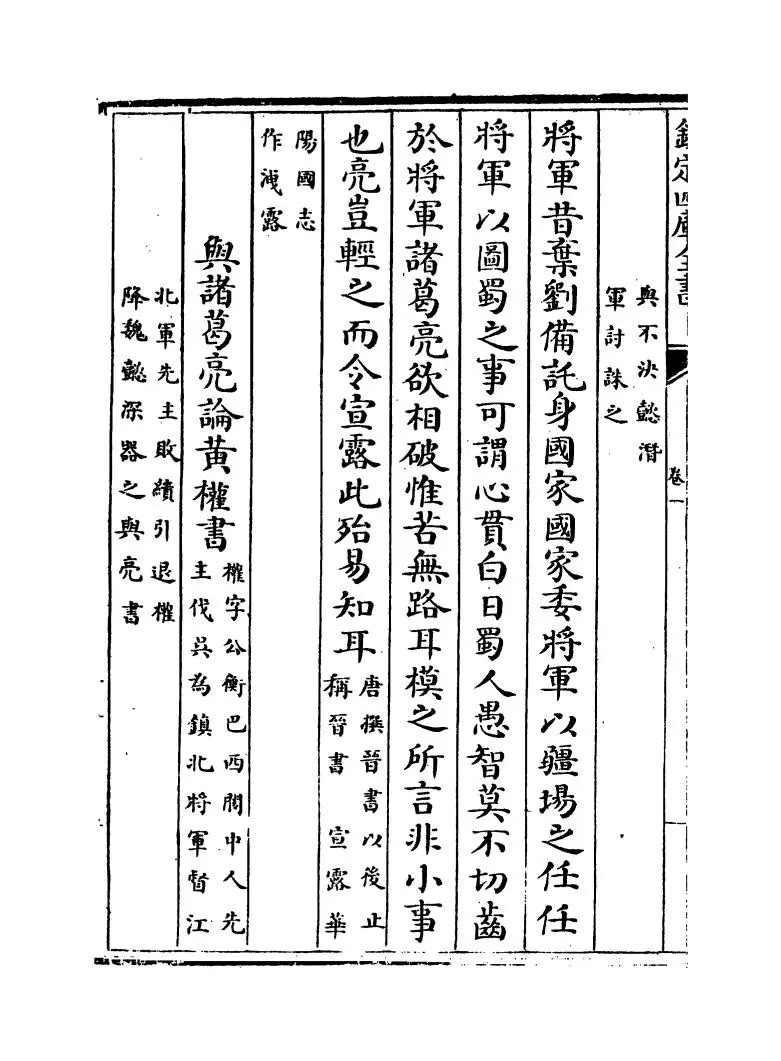 欽定四庫全書
卷一
與不決懿潛
軍討誅之
將軍昔棄劉備託身國家國家委將軍以疆場之任任
將軍以圖蜀之事可謂心貫白日蜀人愚智莫不切齒
於將軍諸葛亮欲相破惟苦無路耳模之所言非小事
也亮豈輕之而令宣露此殆易知耳
唐撰晉書以後止
稱晉書 宣露華
陽國志
作洩露
與諸葛亮論黃權書
權字公衡巴西閬中人先
主伐吳為鎮北將軍督江
北軍先主敗績引退權
降魏懿深器之與亮書